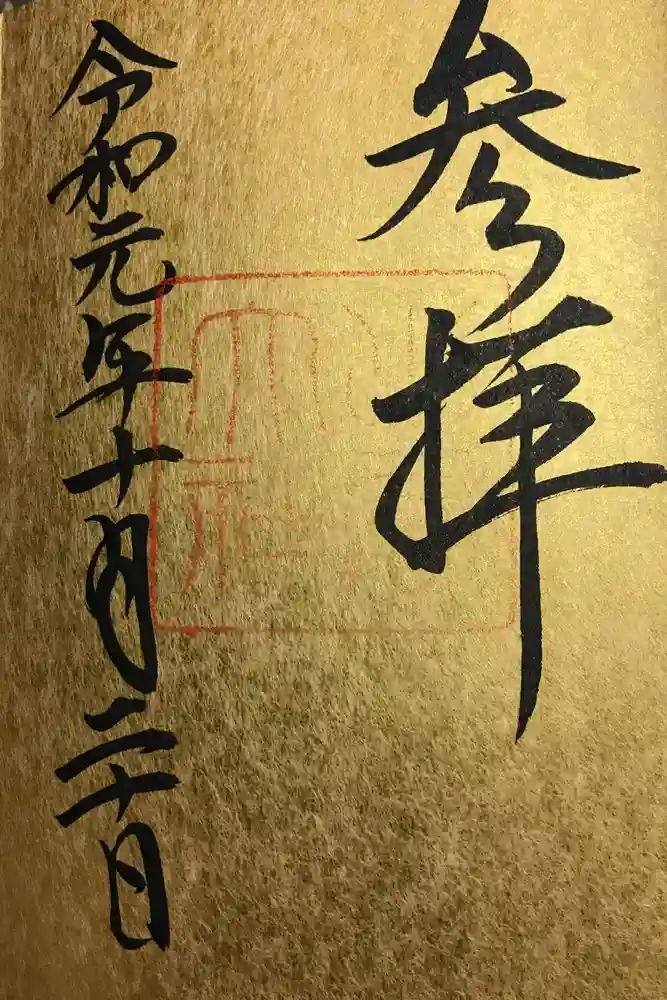 参拝
令和元年十月二十日